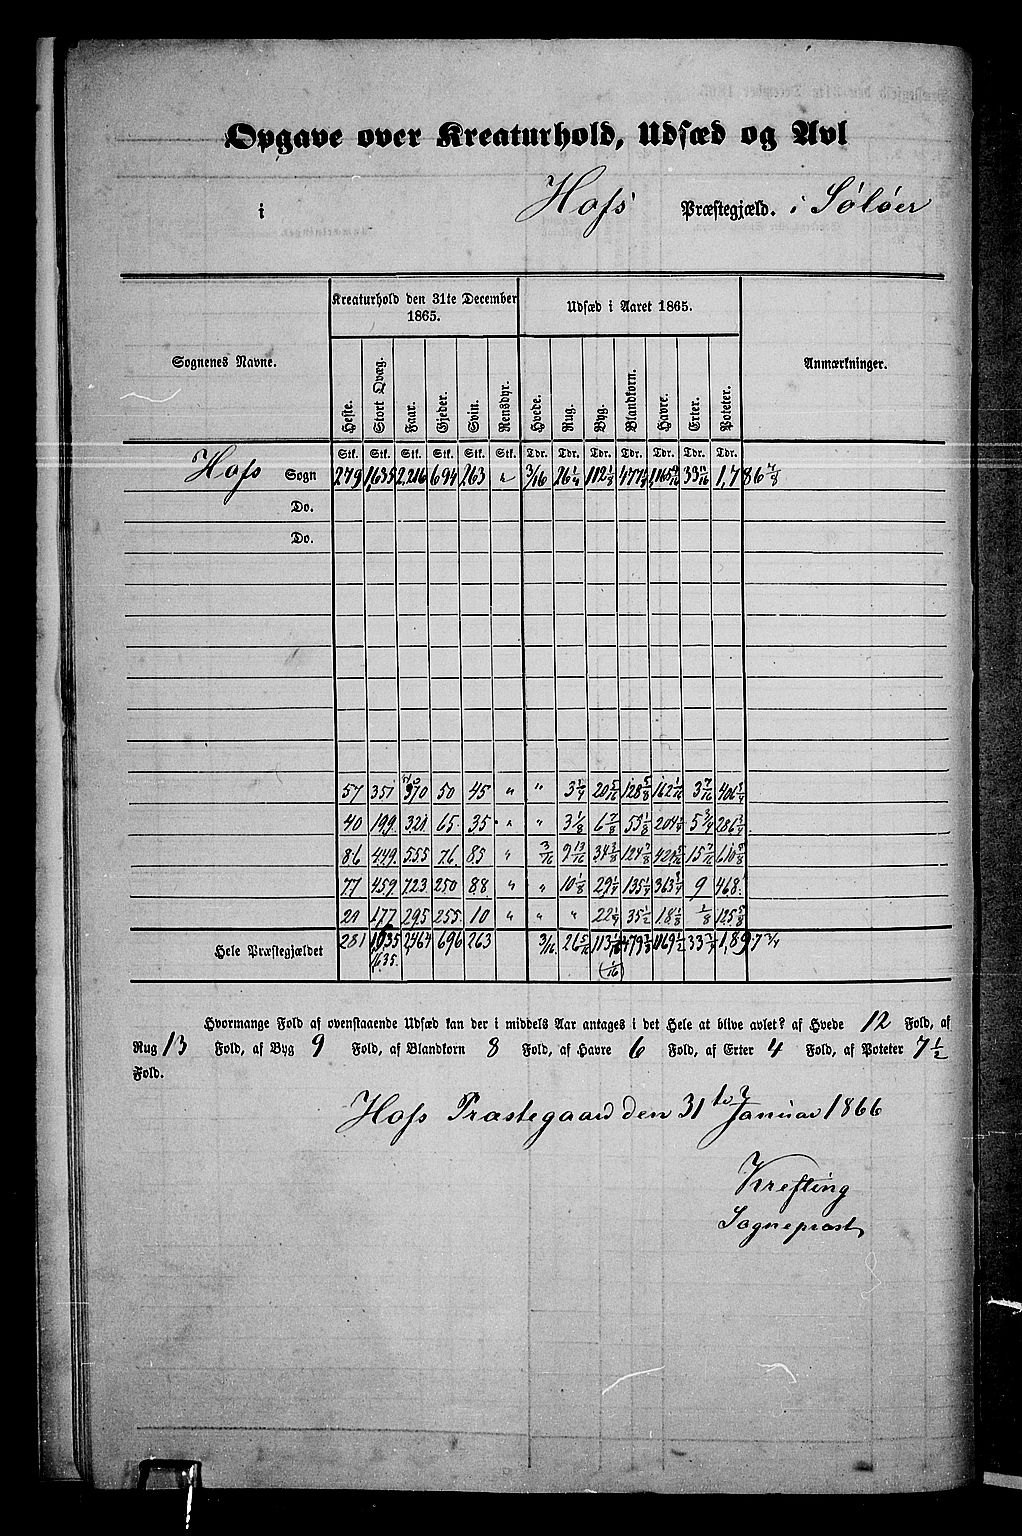 Opgave over Kreaturhold, Udsæd og Avl
i Hofs Præstegjæld. i Solöer
Sognenes Navne.
Kreaturhold den 31te December 1865.
Udsæd i Aaret 1865.
Anmærkninger.
Heste. Stort Qvæg. Faar. Gjeder. Svin. Rensdyr. Hvede. Rug. Byg. Blandkorn. Havre. Erter. Poteter.
Stk. Stk. Stk. Stk. Stk. Stk. Tdr. Tdr. Tdr. Tdr. Tdr. Tdr. Tdr.
Hofs Sogn 279 1,635 2,216 694 263 " 3/16 26 1/4 112 1/8 33 11/16 1,786 7/8
Do.
Do.
57 351 50 45 " " 3 1/4 20 5/16 128 5/8 162 1/16 3 7/16 406 3/4
40 199. 321 65. 35. " " 3 1/8 6 7/8 55 1/8 204 1/4 5 3/4 286 3/4
86 449. 555 76. 85 " 3/16 9 13/16 34 3/8 124 7/8 421 5/16 15 7/16 610 5/8
77 459. 723 250 88 " " 10 1/8 29 1/4 135 1/4 363 3/4 9 468
21 177 295 255. 10 " " " 22 1/4 35 1/2 18 1/8 1/8 125 5/8
Hele Præstegjældet 281 1635 2464 696 263 3/16. 26 5/16 113 1/16 479 3/8 1169 1/2 33 3/4 1,897 3/4
1,635. (1/16)
Hvormange Fold af ovenstaaende Udsæd kan der i middels Aar antages i det Hele at blive avlet? af Hvede 12 Fold, af
Rug 13 Fold, af Byg 9 Fold, af Blandkorn 8 Fold, af Havre 6 Fold, af Erter 4 Fold, af Poteter 7 1/2
Fold.
Hofs Præstegaard den 31te Januar 1866
Krefting
Sognepræst